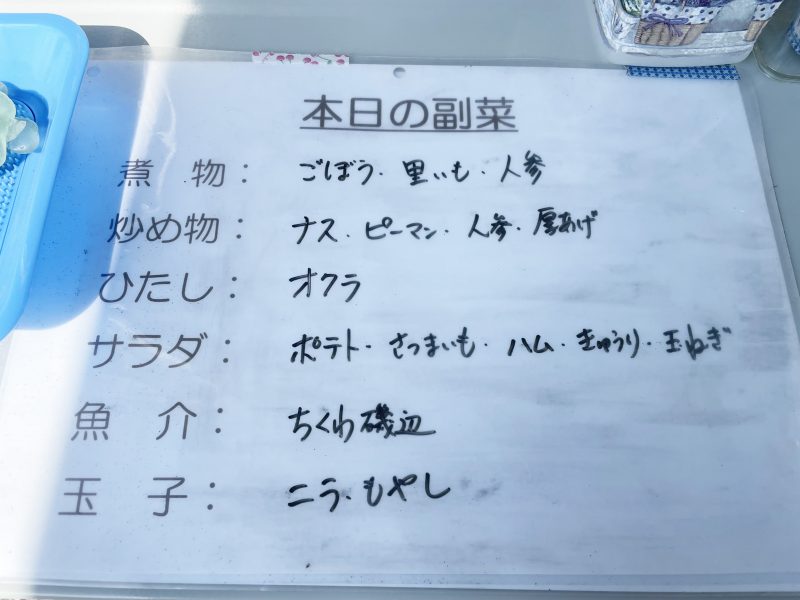 本日の副菜
煮物： ごぼう・里いも・人参
炒め物： ナス・ピーマン・人参・厚あげ
ひたし： オクラ
サラダ： ポテト・さつまいも・ハム・きゅうり・玉ねぎ
魚介： ちくわ磯辺
玉子： ニラ・もやし